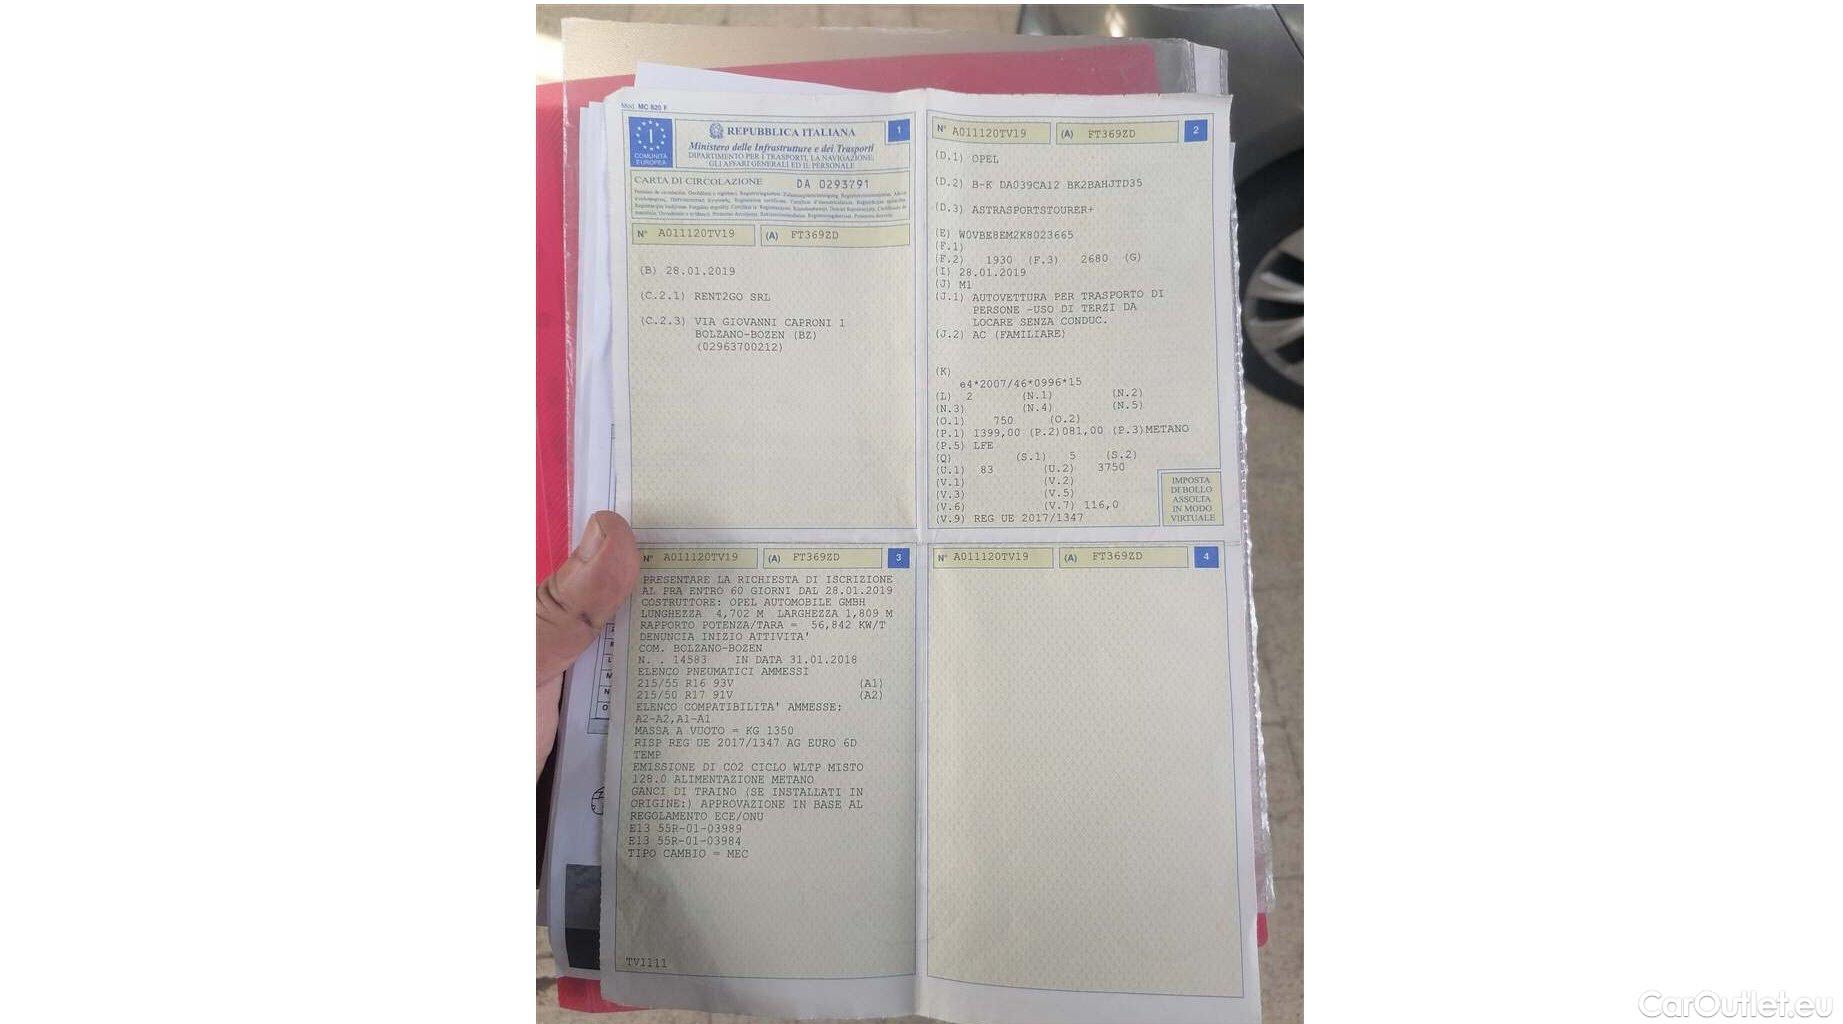 Mod. MC 820 F
COMUNITÀ
EUROPEA
I
REPUBBLICA ITALIANA
Ministero delle Infrastrutture e dei Trasporti
DIPARTIMENTO PER I TRASPORTI, LA NAVIGAZIONE,
GLI AFFARI GENERALI ED IL PERSONALE
1
CARTA DI CIRCOLAZIONE DA 0293791
N° A011120TV19 (A) FT369ZD
(B) 28.01.2019
(C.2.1) RENT2GO SRL
(C.2.3) VIA GIOVANNI CAPRONI 1
BOLZANO-BOZEN (BZ)
(02963700212)
N° A011120TV19 (A) FT369ZD 2
(D.1) OPEL
(D.2) B-K DA039CA12 BK2BAHJTD35
(D.3) ASTRASPORTSTOURER+
(E) W0VBE8EM2K8023665
(F.1)
(F.2) 1930 (F.3) 2680 (G)
(I) 28.01.2019
(J) M1
(J.1) AUTOVETTURA PER TRASPORTO DI
PERSONE -USO DI TERZI DA
LOCARE SENZA CONDUC.
(J.2) AC (FAMILIARE)
(K)
e4*2007/46*0996*15
(L) 2 (N.1) (N.2)
(N.3) (N.4) (N.5)
(O.1) 750 (O.2)
(P.1) 1399,00 (P.2)081,00 (P.3)METANO
(P.5) LFE
(Q) (S.1) 5 (S.2)
(U.1) 83 (U.2) 3750
(V.1) (V.2)
(V.3) (V.5)
(V.6) (V.7) 116,0
(V.9) REG UE 2017/1347
IMPOSTA
DI BOLLO
ASSOLTA
IN MODO
VIRTUALE
N° A011120TV19 (A) FT369ZD 3
PRESENTARE LA RICHIESTA DI ISCRIZIONE
AL PRA ENTRO 60 GIORNI DAL 28.01.2019
COSTRUTTORE: OPEL AUTOMOBILE GMBH
LUNGHEZZA 4,702 M LARGHEZZA 1,809 M
RAPPORTO POTENZA/TARA = 56,842 KW/T
DENUNCIA INIZIO ATTIVITA'
COM. BOLZANO-BOZEN
N. . 14583 IN DATA 31.01.2018
ELENCO PNEUMATICI AMMESSI
215/55 R16 93V (A1)
215/50 R17 91V (A2)
ELENCO COMPATIBILITA' AMMESSE:
A2-A2,A1-A1
MASSA A VUOTO = KG 1350
RISP REG UE 2017/1347 AG EURO 6D
TEMP
EMISSIONE DI CO2 CICLO WLTP MISTO
128.0 ALIMENTAZIONE METANO
GANCI DI TRAINO (SE INSTALLATI IN
ORIGINE:) APPROVAZIONE IN BASE AL
REGOLAMENTO ECE/ONU
E13 55R-01-03989
E13 55R-01-03984
TIPO CAMBIO = MEC
TV1111
N° A011120TV19 (A) FT369ZD 4
CarOutlet.eu